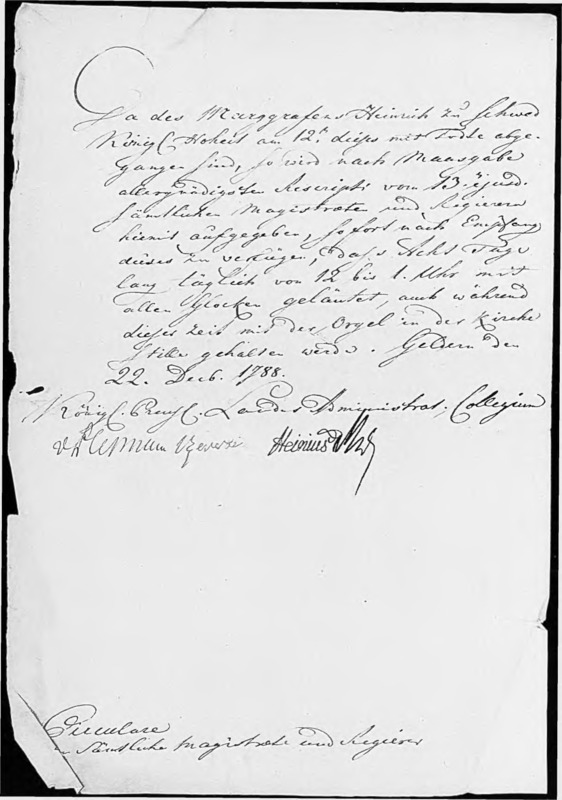 Da des Marggrafens Heinrich zu Schwed
Königl. Hoheit am 12t. dieses mit Tode abge-
gangen sind, so wird nach Maasgabe
allergnädigsten Rescripti vom 13. ejusd.
sämtlichen Magistraeten und Regierer
hiemit aufgegeben, sofort nach Empfang
dieses zu verfügen, dass Acht Tage
lang täglich von 12 bis 1. Uhr mit
allen Glocken geläutet, auch während
dieser Zeit mit der Orgel in der Kirche
stille gehalten werde. Geldern den
22. Decb. 1788.
Königl. Preusl. Landes Administrat. Collegium
Heinius
Circulare
Sämtliche Magistraete und Regierer